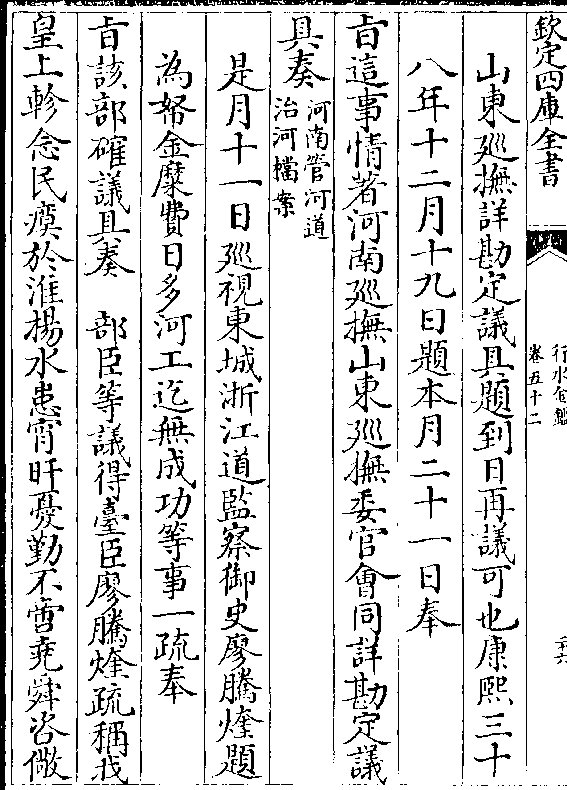 欽定四庫全書
行水金鑑
卷五十二
山東廵撫詳勘定議具題到日再議可也康熙三十
八年十二月十九日題本月二十一日奉
旨這事情著河南廵撫山東廵撫委官會同詳勘定議
具奏河南管河道
治河檔案
是月十一日廵視東城浙江道監察御史廖騰煃題
為帑金糜費日多河工迄無成功等事一疏奉
旨該部確議具奏　部臣等議得臺臣廖騰煃疏稱我
皇上軫念民瘼於淮楊水患宵旰憂勤不啻堯舜咨儆